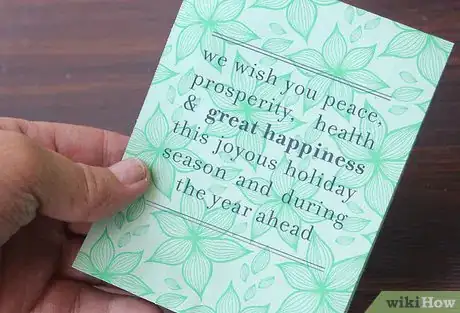 we wish you peace,
prosperity, health
& great happiness
this joyous holiday
season and during
the year ahead
wikiHow